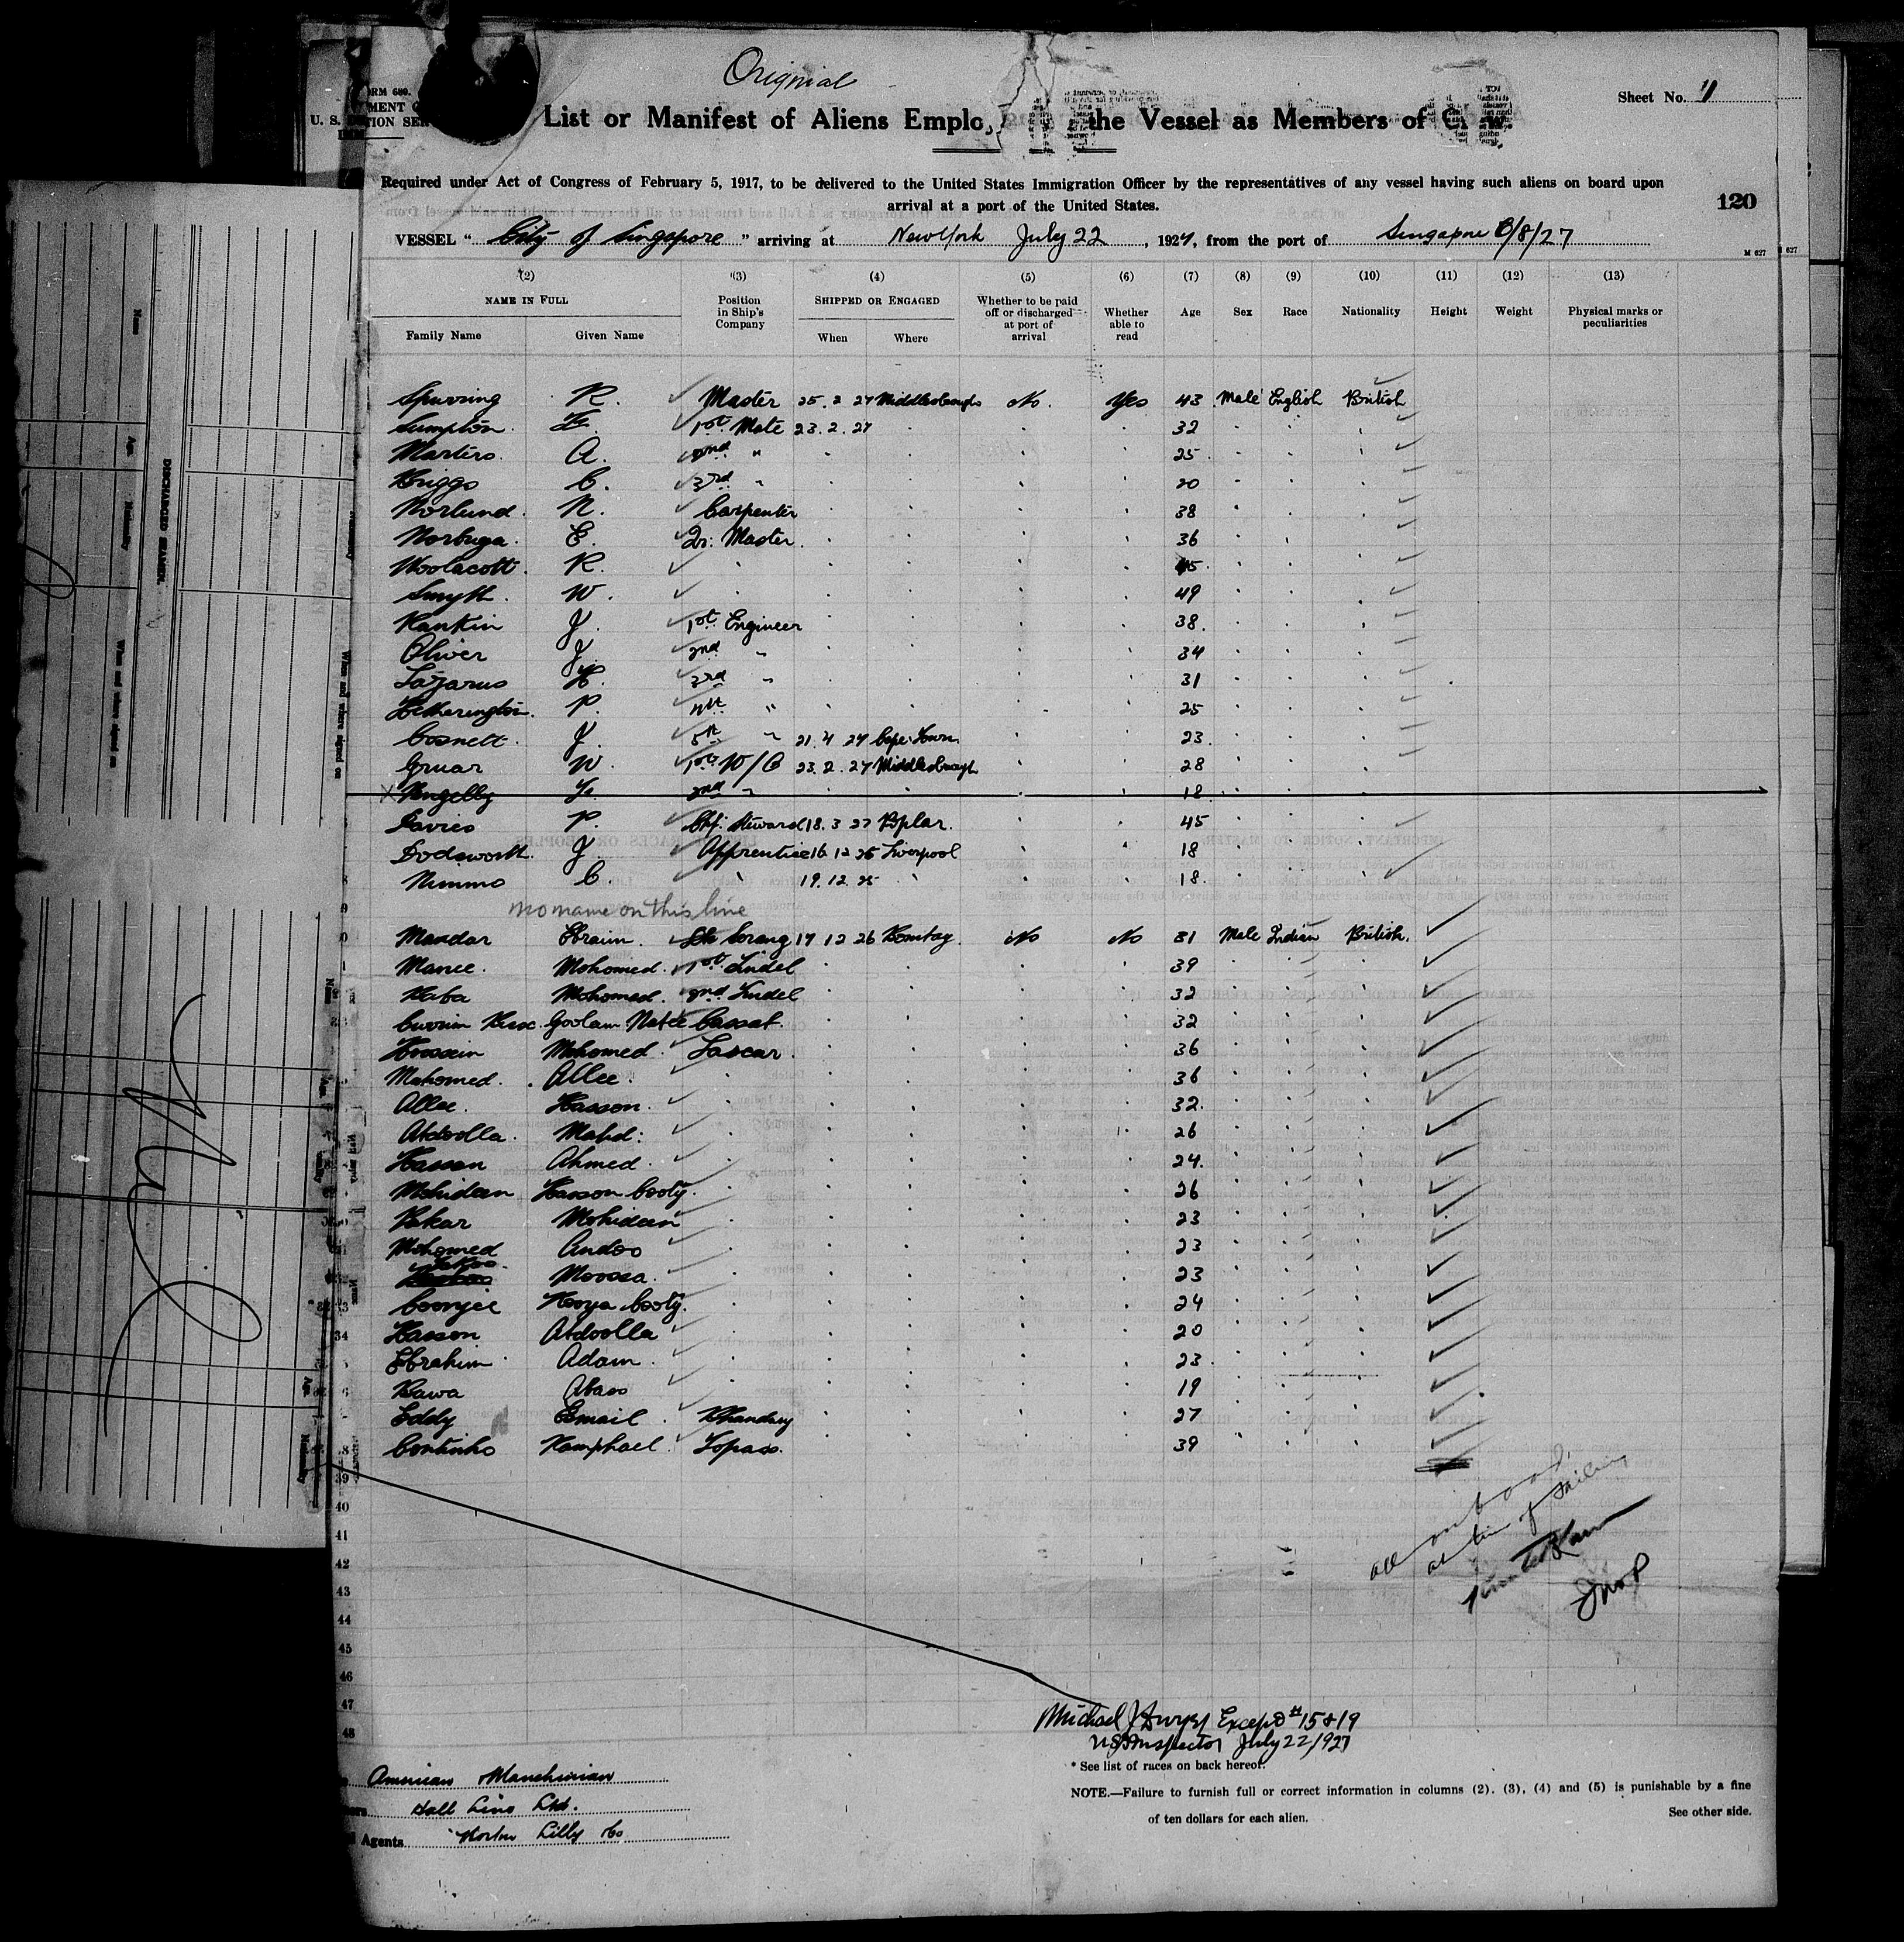 Original
Sheet No. 1
List or Manifest of Aliens Emplo the Vessel as Members of
Required under Act of Congress of February 5, 1917, to be delivered to the United States Immigration Officer by the representatives of any vessel having such aliens on board upon
arrival at a port of the United States.
120
VESSEL " City of Singapore " arriving at New York July 22, 1927, from the port of Singapore 6/8/27
M 627
(2) (3) (4) (5) (6) (7) (8) (9) (10) (11) (12) (13)
NAME IN FULL Position in Ship's Company SHIPPED OR ENGAGED Whether to be paid off or discharged at port of arrival Whether able to read Age Sex Race Nationality Height Weight Physical marks or peculiarities
Family Name Given Name When Where
Spurring R. Master 25.2.27 Middlesbrough No. Yes 43 Male English British
Sumpton 1st Mate 23.2.27 32
Masters A. 2nd " 25
Briggs C. 3rd " 20
Norlund N. Carpenter 38
Norbuga E. Qr. Master 36
Woolacott R. 45
Smyth W. 49
Rankin J. 1st Engineer 38
Oliver J. 2nd " 34
Lazarus H. 3rd " 31
Hetherington P. 4th " 25
Cosnett J. 5th " 21.4.27 Cape Town 23
Gruar W. 1st W/O 23.2.27 Middlesbrough 28
2nd " 18
Davies P. Chf. Steward 18.3.27 Poplar. 45
Dodsworth J. Apprentice 16 12 25 Liverpool 18
Nimmo C. 19.12.25 18
no name on this line
Mandar Ebraim Serang 17 12 26 Bombay No No 31 Male Indian British
Manee Mohomed 1st Tindel 39
Baba Mohomed 2nd Tindel 32
Goolam Cassab 32
Hoosein Mohomed Lascar 36
Mahomed Allee 36
Allee Hasson 32
Abdoolla Mahd: 26
Hassan Ahmed 24
Mohideen Hasson Cooty 26
Bakar Mohideen 23
Mohomed Andoo 23
Moosa 23
Coonjee Koya Cooty 24
34 Hasson Abdoolla 20
Ebrahim Adam 23
Bawa Abass 19
Eddy Esmail Bhandary 27
Continho Topass 39
39
40
41
42
43
44
45
46
47
48
all on board
at time of sailing
Michael J Dwyer Except #15 & 19
US Inspector July 22/927
* See list of races on back hereof.
NOTE.—Failure to furnish full or correct information in columns (2), (3), (4) and (5) is punishable by a fine
of ten dollars for each alien.
See other side.
American Manchurian
Hall Line Ltd.
Agents Norton Lilly Co
DISCHARGED SEAMEN.
Name
Age
Nationality
When and where signed on